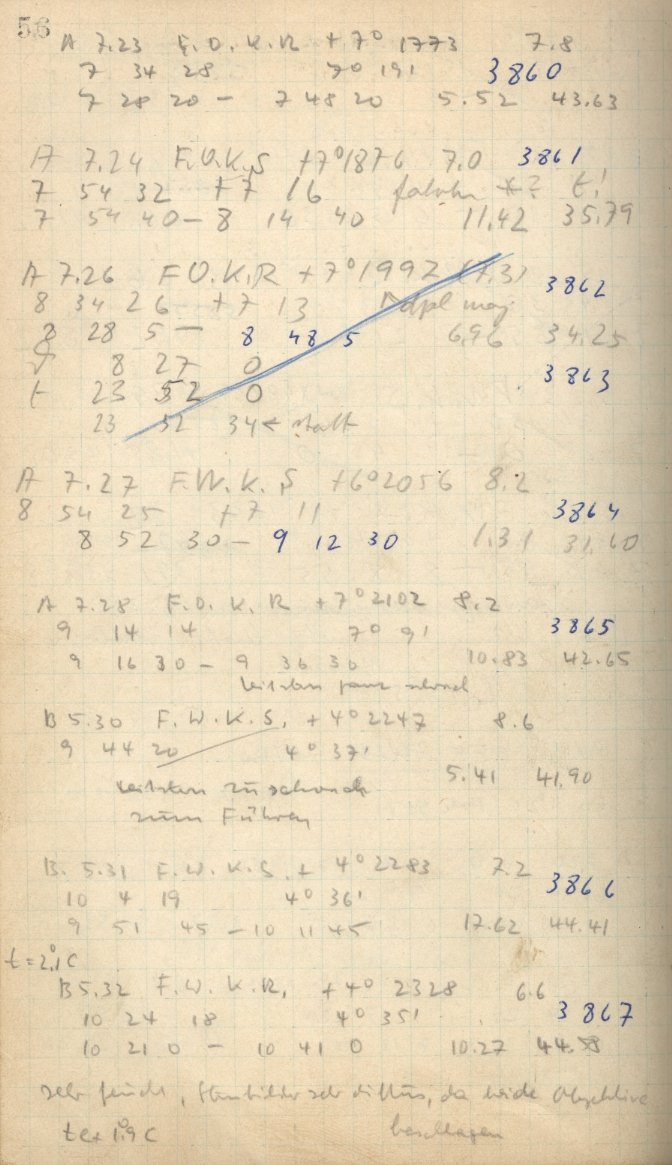 56
A 7.23 F.O.K.R +7° 1773 7.8
7 34 28 7° 19' 3860
7 28 20 - 7 48 20 5.52 43.63
A 7.24 F.O.K.S +7° 1876 7.0 3861
7 54 32 +7 16 *? t!
7 54 40 - 8 14 40 11.42 35.79
A 7.26 F O.K.R +7° 1992 (7.3) 3862
8 34 26 +7 13 dpl maj
8 28 5 - 8 48 5 6.96 34.25
8 27 0 3863
t 23 52 0
23 52 34 ← statt
A 7.27 F.W.K.S +6° 2056 8.2
8 54 25 +7 11 3864
8 52 30 - 9 12 30 1.31 31.60
A 7.28 F.O.K.R +7° 2102 8.2
9 14 14 7° 9' 3865
9 16 30 - 9 36 30 10.83 42.65
Leitstern ganz schwach
B 5.30 F.W.K.S. +4° 2247 8.6
9 44 20 4° 37'
5.41 41.90
Leitstern zu schwach
zum Führen
B. 5.31 F.W.K.S. + 4° 2283 7.2 3866
10 4 19 4° 36'
9 51 45 - 10 11 45 17.62 44.41
t = 2°,1 C
B 5.32 F.W.K.R. +4° 2328 6.6
10 24 18 4° 35' 3867
10 21 0 - 10 41 0 10.27
sehr feucht, Sternbilder sehr diffus, da beide Objektive
beschlagen
1°.9 C